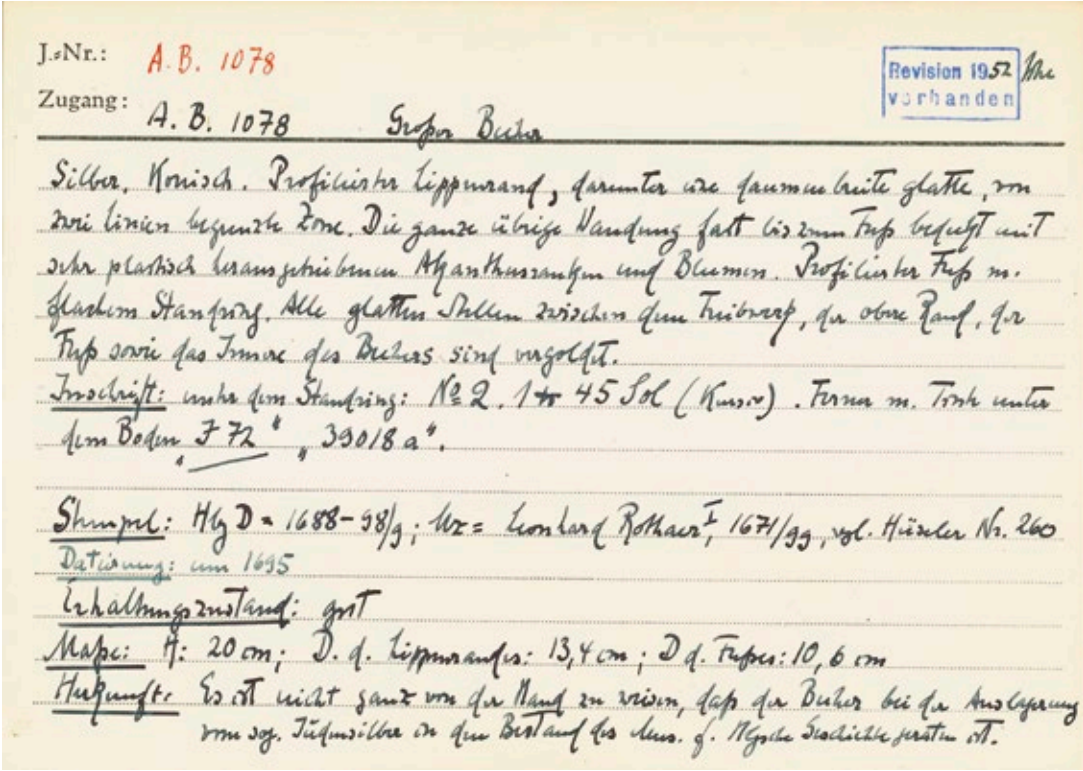 J.=Nr.: A.B. 1078
Revision 1952
vorhanden
Zugang: A.B. 1078 Großer Becher
Silber, Konisch. Profilierter Lippenrand, darunter eine daumenbreite glatte, von
zwei Linien begrenzte Zone. Die ganze übrige Wandung fast bis zum Fuß bedeckt mit
sehr plastisch herausgetriebenen Akanthusranken und Blumen. Profilierter Fuß m.
flachem Standring. Alle glatten Stellen zwischen dem Treibwerk, der obere Rand, der
Fuß sowie das Innere des Bechers sind vergoldet.
Inschrift: unter dem Standring: No 2. 1 45 Sol (Kursiv). Ferner m. Tinte unter
dem Boden „J 72" „39018 a".
Stempel: Hbg D = 1688-98/9; Mz = Leonhard Rothaer I, 1671/99, vgl. Hüseler Nr. 260
Datierung: um 1695
Erhaltungszustand: gut
Maße: H: 20 cm; D. d. Lippenrandes: 13,4 cm; D d. Fußes: 10,6 cm
Herkunft: Es ist nicht ganz von der Hand zu weisen, daß der Becher bei der Auslagerung
vom sog. Judensilber in den Bestand des Mus. f. Hbgsche Geschichte geraten ist.